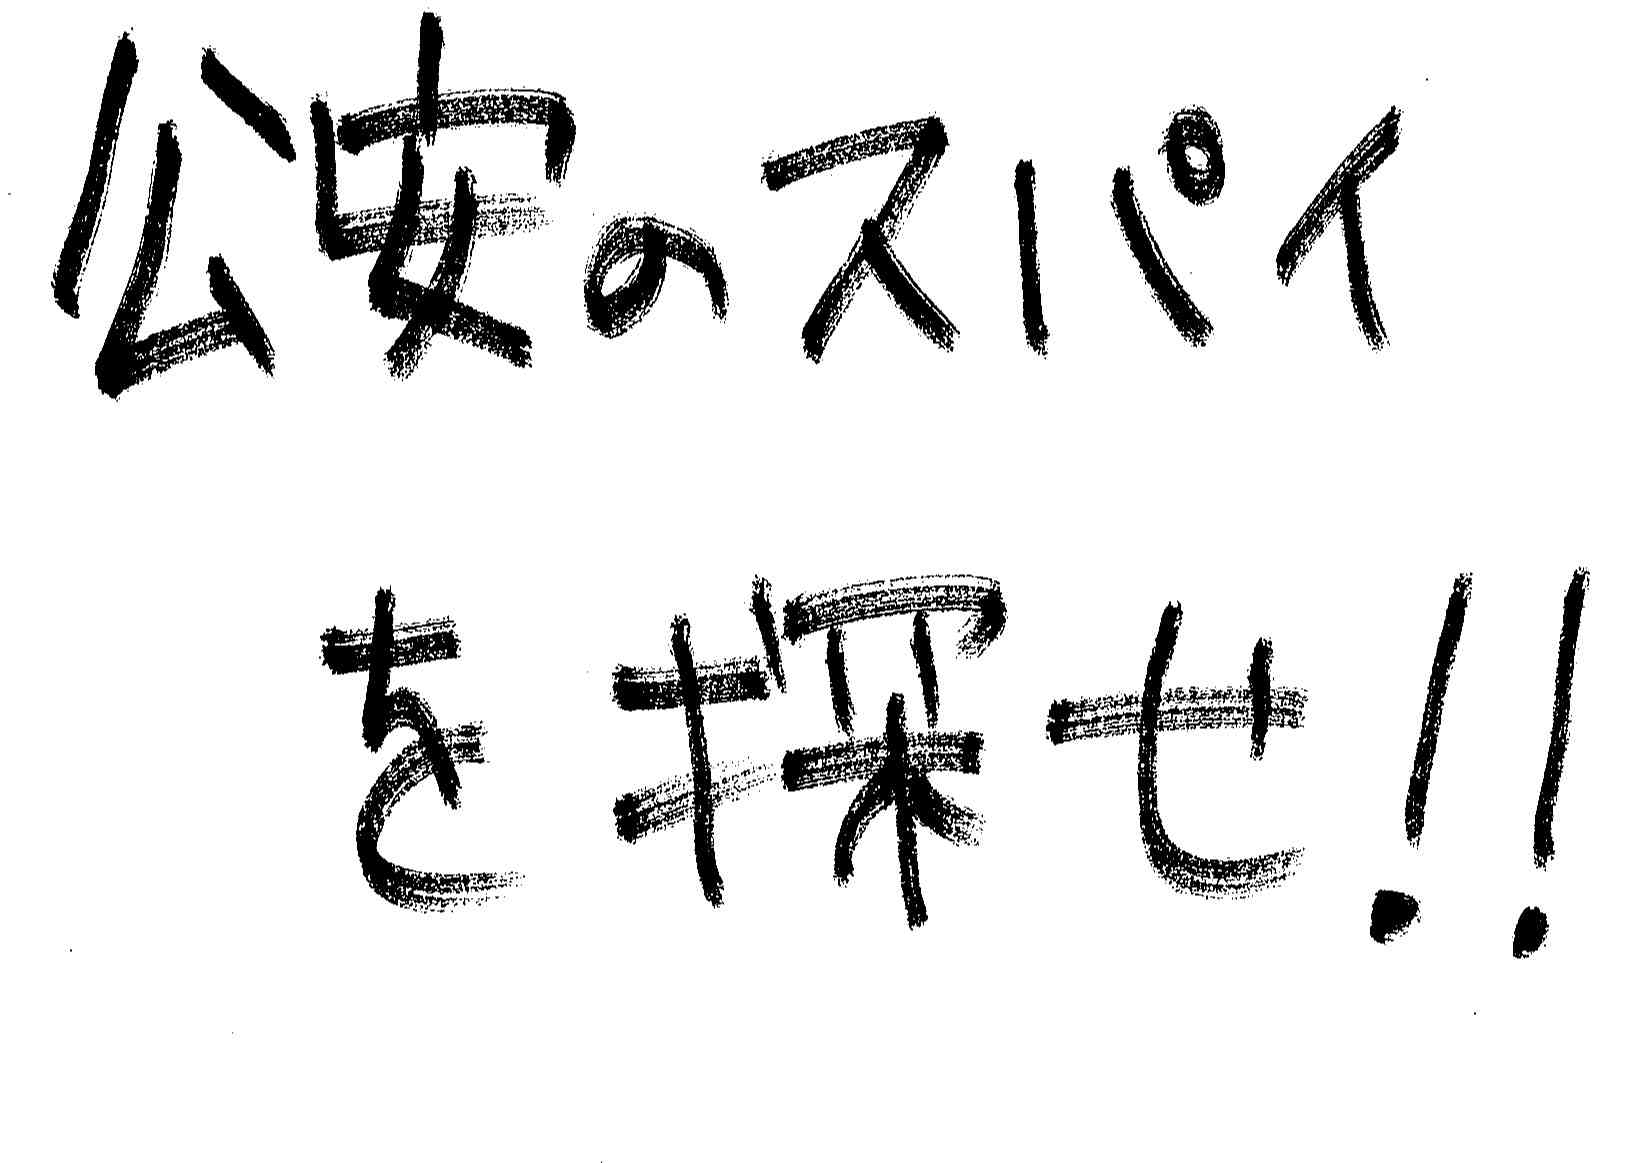 公安のスパイ
を探せ!!